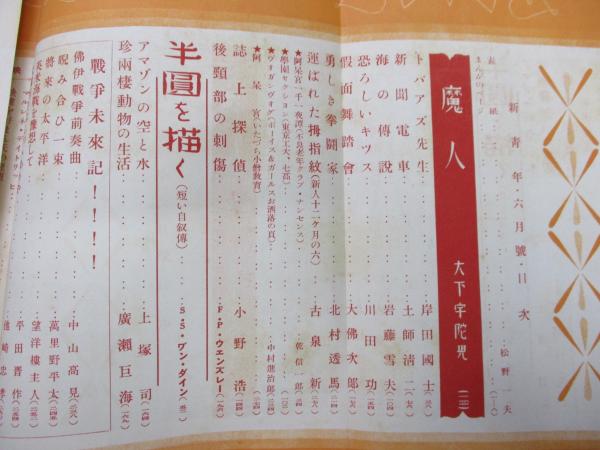 新青年・六月號・目次
表紙 松野一夫
まんがのページ
魔人 大下宇陀児
トパアズ先生 岸田國士
新聞電車 土師清二
海の傳說 岩藤雪夫
恐ろしいキツス 川田功
假面舞踏會 大佛次郎
勇しき拳鬪家 北村透馬
運ばれた拇指紋(新人十二ヶ月の六) 古泉新
★阿呆宮一千一夜譚(不良老年クラブ・ナンセンス) 乾信一郎
★學園セクシヨン(東京工大、七高)
★ヴオガンヴオグ(ボーイス&ガールスお洒落の頁) 中村進治郎
★阿呆宮(いたづら小僧敎育)
誌上探偵 小野浩
後頸部の刺傷 F・P・ウエンズレー
半圓を描く(短い自叙傳) S・S・ヴン・ダイン
アマゾンの空と水 上塚司
珍兩棲動物の生活 廣瀨巨海
戰爭未來記!!!!
佛伊戰爭前奏曲 中山高見
睨み合ひ一束 萬里野平太
將來の太平洋 望洋樓主人
英米海戰を豫想して 平田晋作